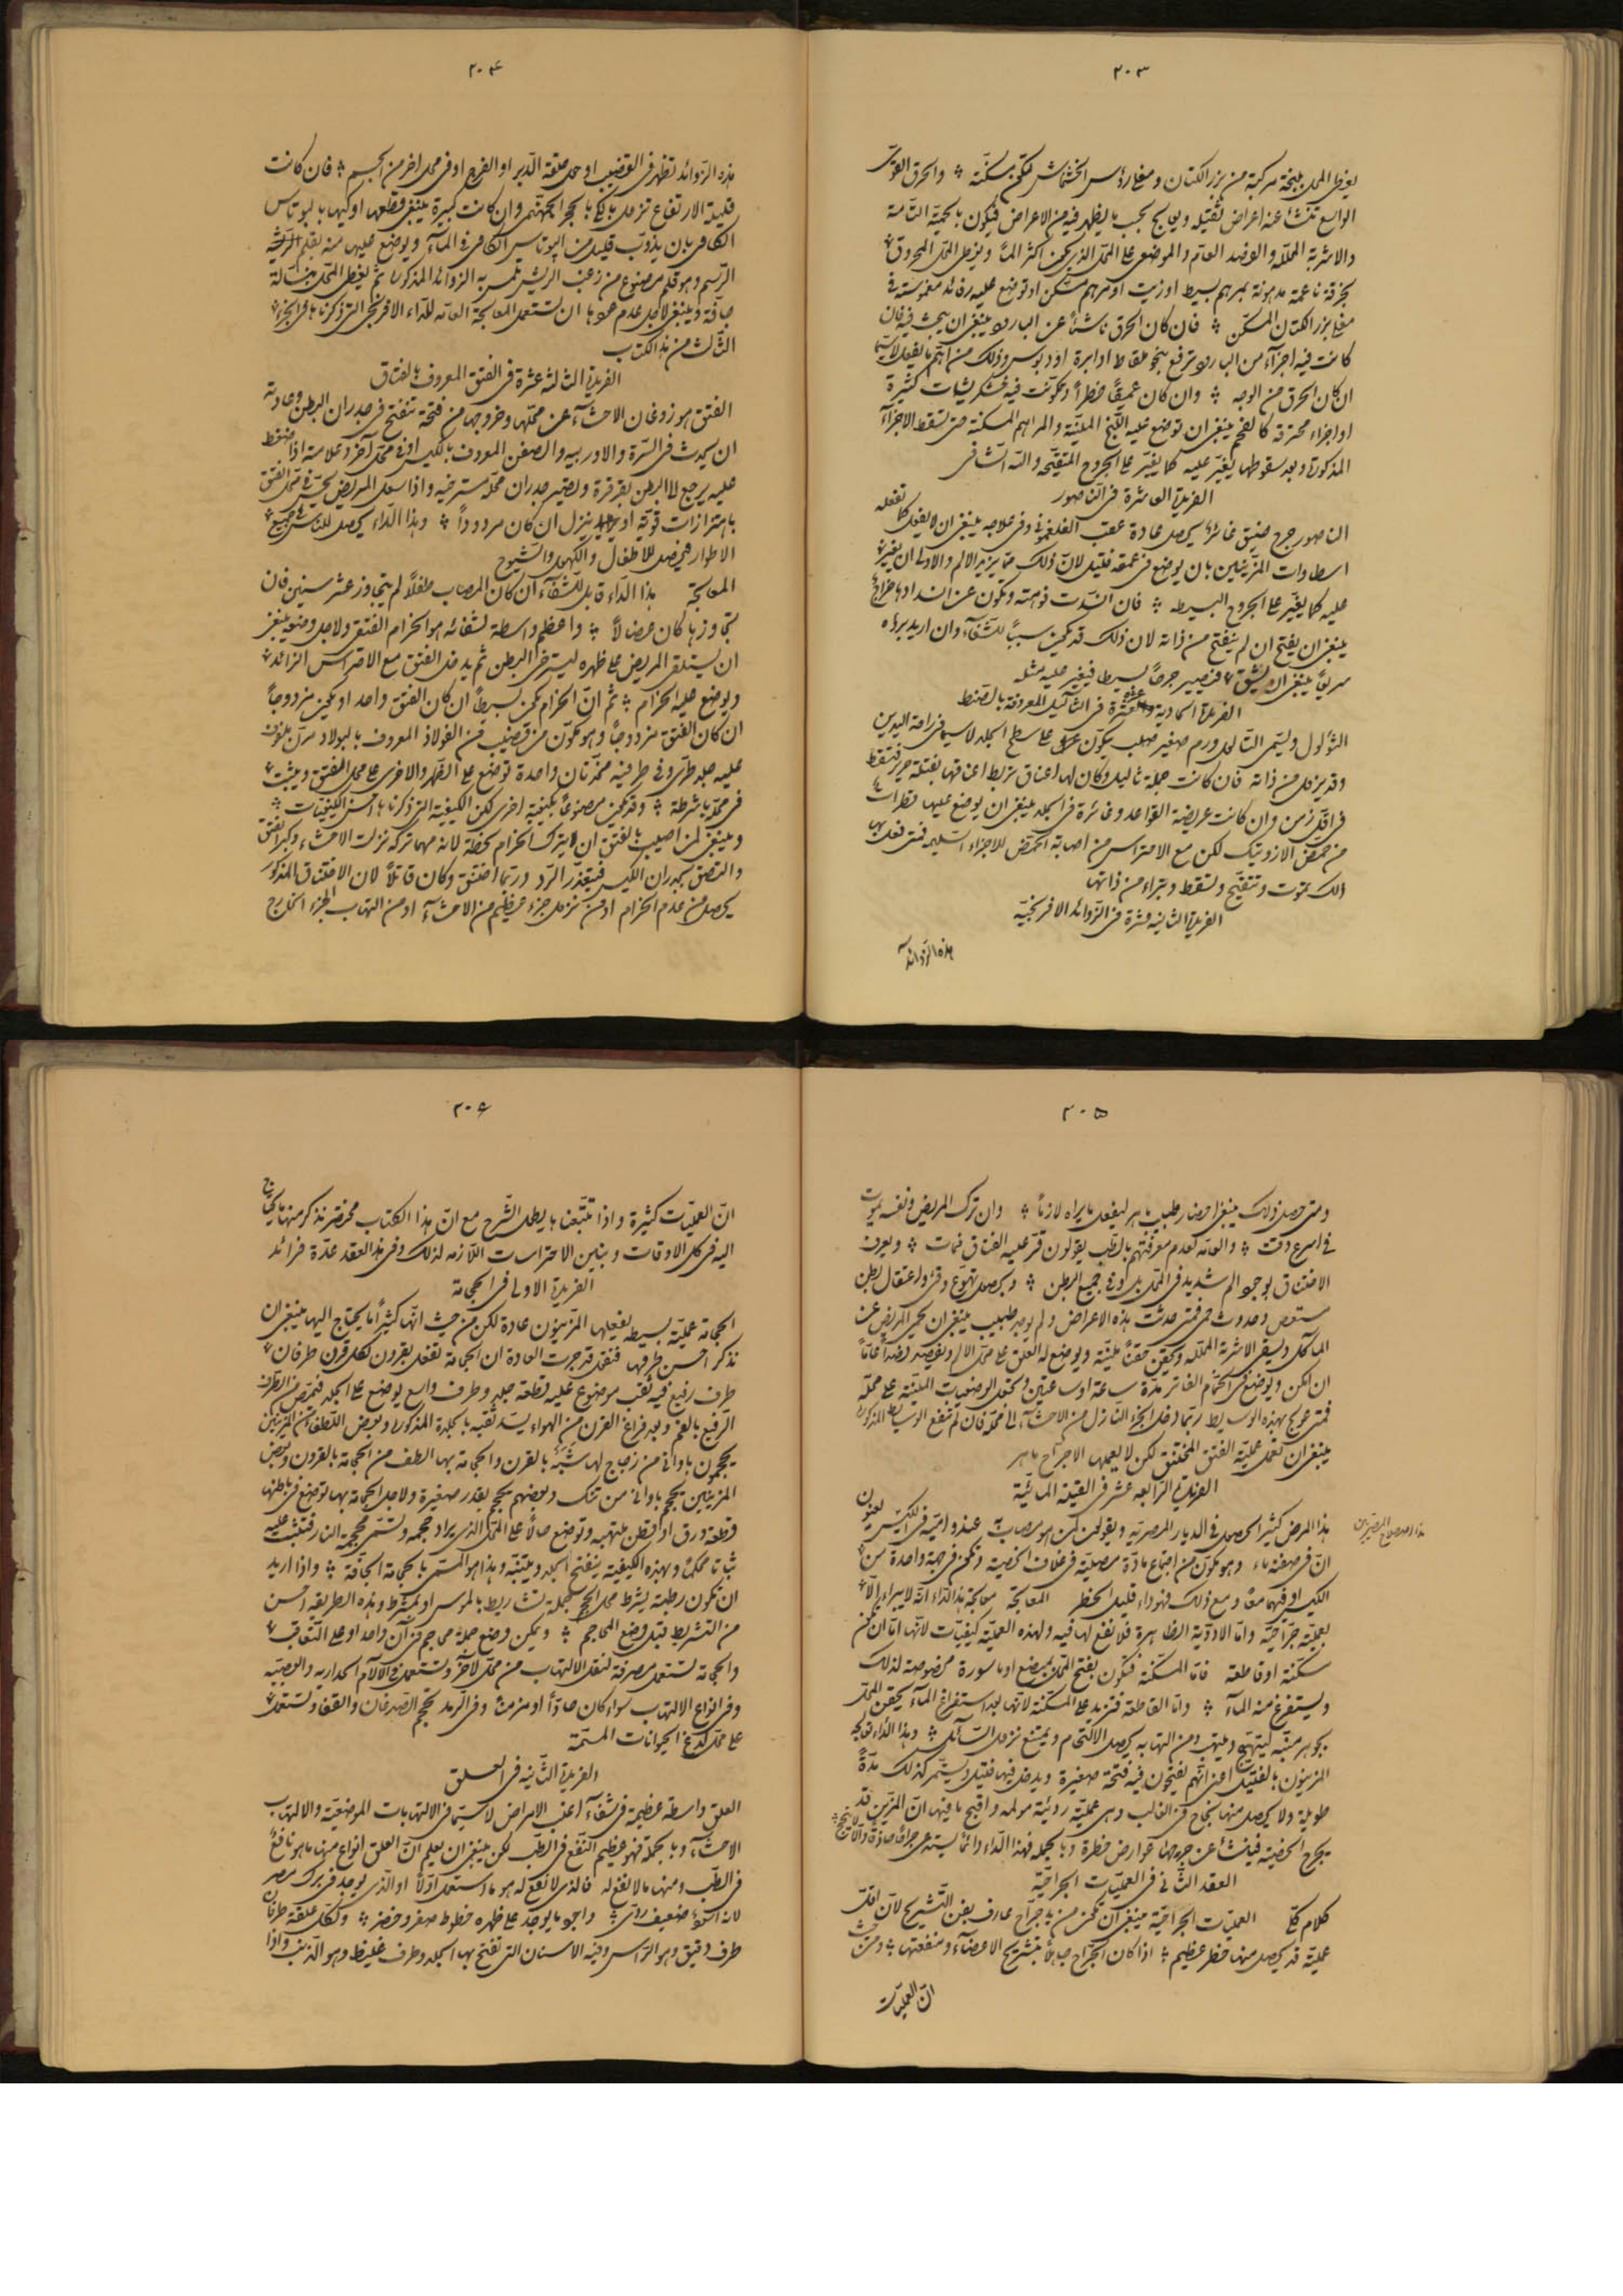 ٢٠٣
يغطى المحل بلبخة مركبة من بزر الكتان ومغلى رؤس الخشخاش لتكون مسكنة والحرق القوى
الواسع تنشأ عنه اعراض ثقيله ويعالج بحسب ما يظهر فيه من الاعراض فيكون بالحمية التامة
والاشربة المحلله والفصد العام والموضعى على المحل الذى يكون اكثر الما ويغطى المحل المحروق
بخرقة ناعمة مدهونة بمرهم بسيط او زيت او مرهم مسكن او توضع عليه رفائد مغموسة فى
مغلى بزر الكتان المسكن فان كان الحرق ناشئا عن البارود ينبغى ان يبحث فيه فان
كانت فيه اجزآء من البارود ترفع بنحو ملقاط او ابرة او دبوس وذلك من اهم ما يفعل لاسيما
ان كان الحرق من الوجه وان كان عميقا خطرا وتكونت فيه خشكريشات كثيرة
او اجزاء محترقة كالفحم ينبغى ان توضع عليه اللبخ الملينة والمراهم المسكنة حتى تسقط الاجزآء
المذكورة وبعد سقوطها يغير عليه كما يغير على الجروح المتقيحة والله الشافى
الفريدة العاشرة فى الناصور
الناصور جرح ضيق غائر يحصل عادة عقب الفلغمونى وفى علاجه ينبغى ان لا يفعل كما تفعله
اسطاوات المزينين بان يوضع فى عمقه فتيل لان ذلك مما يزيد الالم والاولى ان يغير
عليه كما يغير على الجروح البسيطه فان انسدت فوهته وتكون عن انسدادها خراج
ينبغى ان يفتح ان لم ينفتح من ذاته لان ذلك قد يكون سببا للشفآء وان اريد برؤه
سريعا ينبغى ان يشق فيصير جرحا بسيطا فيغير عليه مثله
الفريدة الحادية عشرة فى الثآليل المعروفة بالصنط
الثؤلول ويسمى الثالل ورم صغير صلب يتكون على سطح الجلد لاسيما فى راحة اليدين
وقد يزول من ذاته فان كانت جملة ثاليل وكان لها اعناق تربط اعناقها بفتلة حرير فتسقط
فى اقل زمن وان كانت عريضة القواعد وغائرة فى الجلد ينبغى ان يوضع عليها قطرات
من حمض الازوتيك لكن مع الاحتراس من اصابة الحمض للاجزاء السليمه فمتى فعل بها
ذلك تموت وتتقيح وتسقط وتبراء من ذاتها
الفريدة الثانيه عشرة فى الزوائد الافرنجية
هذه الزوائد
٢٠٤
هذه الزوائد تظهر فى القضيب او حول حلقة الدبر او الفرج او فى محل اخر من الجسم فان كانت
قليلة الارتفاع تزول بالكى بالحجر الجهنمى وان كانت كبيرة ينبغى قطعها او كيها بالبوتاس
الكاوى بان يذوب قليل من البوتاس الكاوى فى المآء ويوضع عليها منه بقلم الريشه
الرسم وهو قلم مصنوع من زغب الريش تمس به الزوائد المذكورة ثم يغطى المحل بنسالة
جآفة وينبغى لاجل عدم عودها ان تستعمل المعالجة العامه للدآء الافرنجى التى ذكرناها فى الجزء
الثالث من هذا الكتاب
الفريدة الثالثه عشرة فى الفتق المعروف بالفتاق
الفتق هو زوغان الاحشآء عن محلها وخروجها من فتحة تنفتح فى جدران البطن وعادته
ان يحدث فى السرة والاوربيه والصفن المعروف بالكيس او فى محل آخر وعلامته اذا ضغط
عليه يرجع الى البطن بقرقرة وتصير جدران محله مسترخيه واذا سعل المريض يحس فى محل الفتق
باهتزازات قوية او ينزل ان كان مردودا وهذا الداء يحصل للناس فى جميع
الاطوار فيحصل للاطفال والكهول والشيوخ
المعالجة هذا الدآء قابل للشفآء ان كان المصاب طفلا لم يتجاوز عشر سنين فان
تجاوزها كان عضالا واعظم واسطة لشفائه هو الحزام الفتقى ولاجل وضعه ينبغى
ان يستلقى المريض على ظهره ليسترخى البطن ثم يدخل الفتق مع الاحتراس الزائد
ويوضع عليه الحزام ثم ان الحزام يكون بسيطا ان كان الفتق واحد او يكون مزدوجا
ان كان الفتق مزدوجا وهو مكون من قضيب من الفولاذ المعروف بالبولاد مرن ملفوف
عليه جلد طرى وفى طرفيه مخدتان واحدة توضع على الظهر والاخرى على محل الفتق ويثبت
فى محله باشرطة وقد يكون مصنوعا بكيفية اخرى لكن الكيفية التى ذكرناها احسن الكيفيات
وينبغى لمن اصيب بالفتق ان لا يترك الحزام لحظة لانه مهما تركه نزلت الاحشاء وكبر الفتق
والتصق بجدران الكيس فيتعذر الرد وربما اختنق وكان قاتلا لان الاختناق المذكور
يحصل من عدم الحزام او من نزول جزء عظيم من الاحشآء او من التهاب الجزء الخارج
٢٠٥
ومتى حصل ذلك ينبغى احضار طبيب ماهر ليفعل ما يراه لازما وان ترك المريض ونفسه يموت
فى اسرع وقت والعامه لعدم معرفتهم بالطب يقولون قفز عليه الفتاق فمات ويعرف
الاختناق بوجود الم شديد فى المحل بل وفى جميع البطن ويحصل تهوع وقئ واعتقال بطن
مستعص وحدوث حمى فمتى حدثت هذه الاعراض ولم يوجد طبيب ينبغى ان يحمى المريض عن
المآكل ويسقى الاشربة المحلله ويحقن حقنا ملينة ويوضع له العلق على محل الالم ويفصد فصدا عاما
ان امكن ويوضع فى الحمام الفاتر مدة ساعة او ساعتين وتحمل الوضعيات الملينة على محله
فمتى عولج بهذه الوسايط ربما دخل الجزء النازل من الاحشآء الى محله فان لم تنفع الوسايط المذكورة
ينبغى ان تعمل عملية الفتق المختنق لكن لا يعملها الا جراح ماهر
الفريدة الرابعه عشر فى القيلة المائية
هذا المرض كثير الحصول فى الديار المصريه ويقولون لمن هو مصاب به عنده اميه فى الكيس يعنون
ان فى صفنه ماء وهو مكون من اجتماع مادة مصليه فى غلاف الخصية وتكون فى جهة واحدة من
الكيس او فيهما معا ومع ذلك فهو داء قليل الخطر المعالجة معالجة هذا الدآء انه لا يبراء الا
بعملية جراحية واما الادوية الظاهرة فلا نفع لها فيه ولهذه العملية كيفيات لانها اما ان تكون
مسكنة او قاطعة فاما المسكنة فتكون بفتح المحل بمبضع او ماسورة مخصوصة لذلك
ويستفرغ منه المآء واما القاطعة فتزيد على المسكنة لانها بعد استفراغ المآء يحقن المحل
بجوهر منبه ليتهيج ويلتهب ومن التهابه يحصل الالتحام ويمتنع نزول السائل وهذا الداء تعالجه
المزينون بالفتيل اعنى انهم يفتحون فيه فتحة صغيرة ويدخل فيها فتيل ويستمر كذلك مدة
طويلة ولا يحصل منها نجاح فى الغالب وهى عملية رديئة مولمه واقبح ما فيها ان المزين قد
يجرح الخصية فينشأ عن جرحها عوارض خطرة وبالجمله فهذا الدآء دائما يستدعى جراحا حاذقا والا لا ينجح
العقد الثانى فى العمليات الجراحية
كلام كلى العمليات الجراحية ينبغى ان تكون من يد جراح عارف بفن التشريح لان اقل
عملية قد يحصل منها خطر عظيم اذا كان الجراح جاهلا بتشريح الاعضآء ومنفعتها ومن حيث
ان العمليات
هذا اصطلاح المصريين
٢٠٦
ان العمليات كثيرة واذا تتبعناها يطول الشرح مع ان هذا الكتاب مختصر نذكر منها ما يحتاج
اليه فى كل الاوقات ونبين الاحتراسات اللازمه لذلك وفى هذا العقد عدة فرائد
الفريدة الاولى فى الحجامة
الحجامة عملية بسيطه يفعلها المزينون عادة لكن من حيث انها كثيرا ما يحتاج اليها ينبغى ان
نذكر احسن طرقها فنقول قد جرت العادة ان الحجامة تفعل بقرون لكل قرن طرفان
طرف رفيع فيه ثقب موضوع عليه قطعة جلد وطرف واسع يوضع على الجلد فتمص من الطرف
الرفيع بالفم وبعد فراغ القرن من الهواء يسد ثقبه بالجلدة المذكورة وبعض اللطفاء من المزينين
يحجمون باوانى من زجاج لها شبه بالقرن والحجامة بها الطف من الحجامة بالقرون وبعض
المزينين يحجم باوانى من تنك وبعضهم يحجم بقدر صغيرة ولاجل الحجامة بها توضع فى باطنها
قطعة ورق او قطن ملتهبه وتوضع حالا على المحل الذى يراد حجمه وتسمى محجمة النار فتثبت عليه
ثباتا محكما وبهذه الكيفية ينفتح الجلد ويتنبه وهذا هو المسمى بالحجامة الجآفة واذا اريد
ان تكون رطبة يشرط محل الحجم بجملة تشاريط بالموس او بمشرط وهذه الطريقه احسن
من التشريط قبل وضع المحاجم ويمكن وضع جملة محاجم فى آن واحد او على التعاقب
والحجامة تستعمل مصرفة لنقل الالتهاب من محل لآخر وتستعمل فى الالآم الحداريه والعصبيه
وفى انواع الالتهاب سواء كان حادا او مزمنا وفى الرمد تحجم الصدغان والقفا وتستعمل
على محل لدغ الحيوانات المسمة
الفريدة الثانيه فى العلق
العلق واسطة عظيمة فى شفآء اغلب الامراض لاسيما فى الالتهابات الموضعية والالتهاب
الاحشآء وبالجملة فهو عظيم النفع فى الطب لكن ينبغى ان يعلم ان العلق انواع منها ما هو نافع
فى الطب ومنها ما لا نفع له فالذى لا نفع له هو ما استعمل اولا او الذى يوجد فى برك مصر
لانه اسود ضعيف ردئ واجوده ما يوجد على ظهره خطوط صفر وخضر ولكل علقة طرفان
طرف دقيق وهو الراس وفيه الاسنان التى تفتح بها الجلد وطرف غليظ وهو الذنب واذا